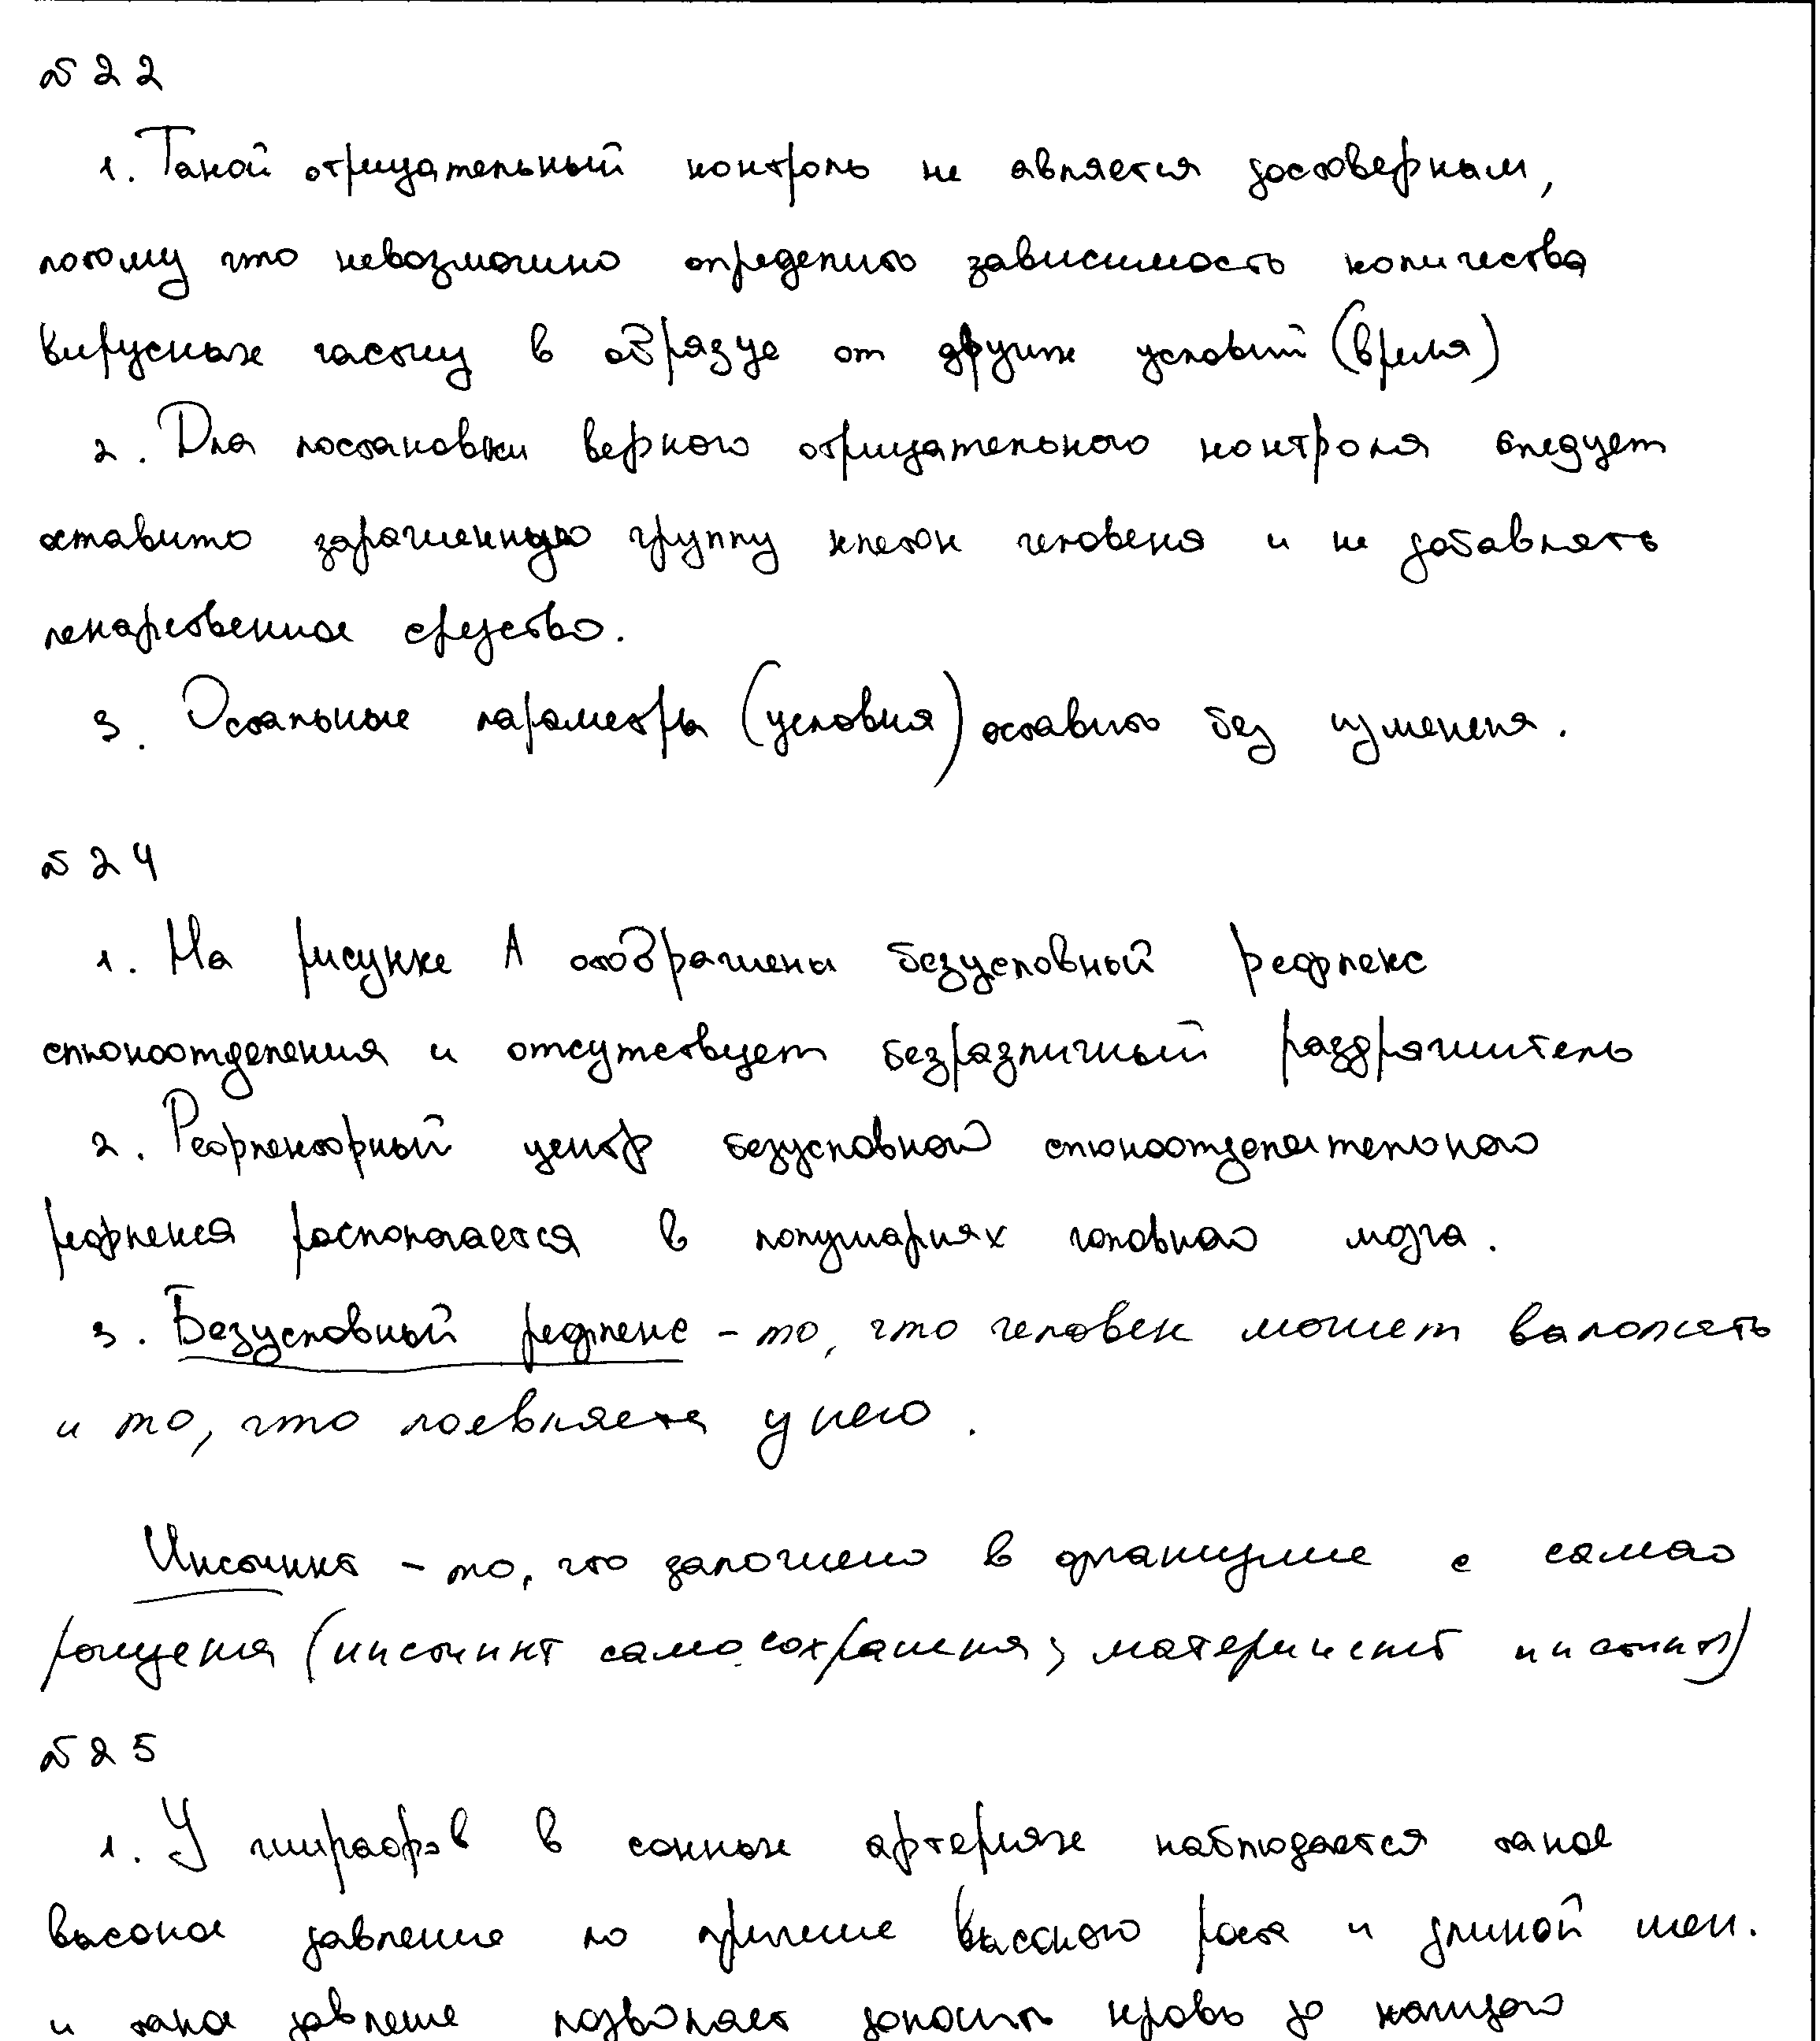 № 22
1. Такой отрицательный контроль не является достоверным,
потому что невозможно определить зависимость количества
вирусных частиц в образце от других условий (время)
2. Для постановки верного отрицательного контроля следует
оставить заражённую группу клеток человека и не добавлять
лекарственное средство.
3. Остальные параметры (условия) оставить без измененя.
№ 24
1. На рисунке А отображены безусловный рефлекс
слюноотделения и отсутствует безразличный раздражитель
2. Рефлекторный центр безусловного слюноотделительного
рефлекса располагается в полушариях головного мозга.
3. Безусловный рефлекс – то, что человек может
и то, что у него.
Инстинкт – то, что заложено в с самого
рождения (инстинкт самосохранения, инстинкт)
№ 25
1. У жирафов в сонных артериях наблюдается такое
высокое давление по причине высокого роста и длиной шеи.
и такое давление позволяет доносить кровь до каждого